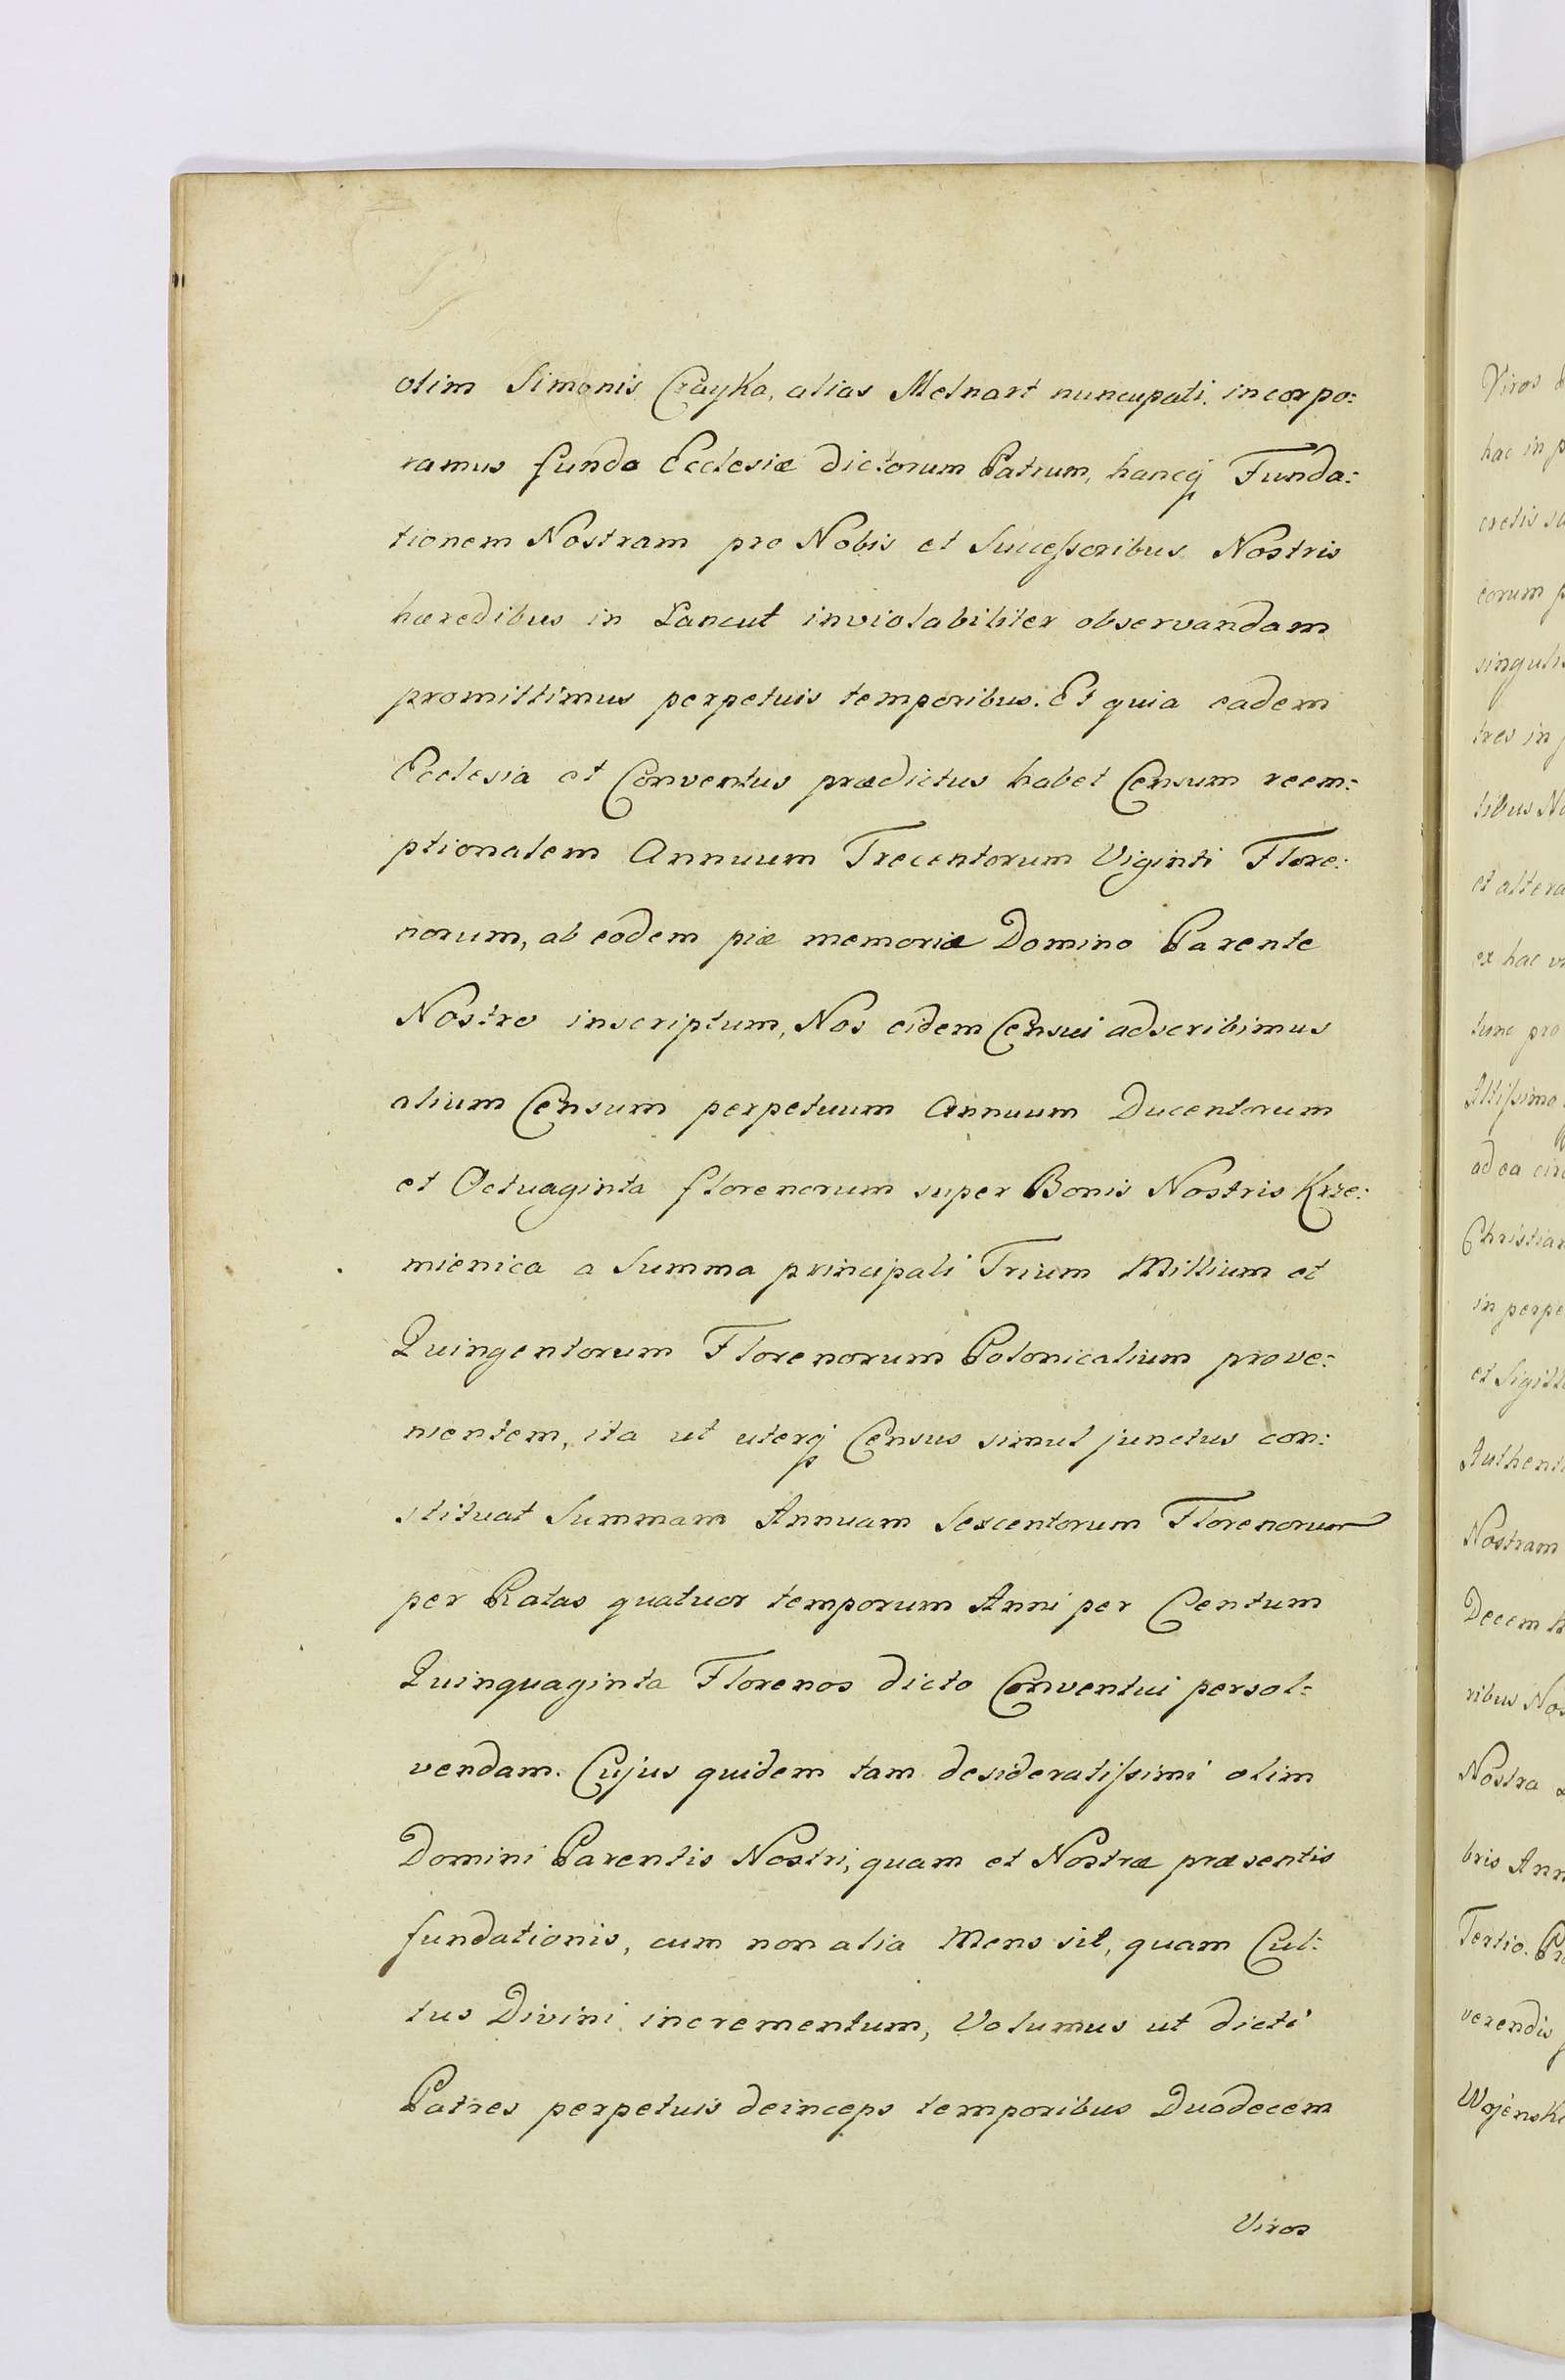 olim Simonis Czayka, alias Melnart nuncupati, incorpo:
ramus fundo Ecclesiæ dictorum Patrum, hancq Funda:
tionem Nostram pro Nobis et Successoribus Nostris
hæredibus in Lancut inviolabiliter observandam
promittimus perpetuis temporibus. Et quia eadem
Ecclesia et Conventus prædictus habet Censum reem:
ptionalem Annuum Trecentorum Viginti Flore:
norum, ab eodem piæ memoriæ Domino Parente
Nostro inscriptum, Nos eidem Censui adscribimus
alium Censum perpetuum Annuum Ducentorum
et Octuaginta florenorum super Bonis Nostris Krze:
mienica a Summa principali Trium Millium et
Quingentorum Florenorum Polonicalium prove:
nientem, ita ut uterq Census simul junctus con:
stituat Summam Annuam Sexcentorum Florenorum
per Ratas quatuor temporum Anni per Centum
Quinquaginta Florenos dicto Conventui persol:
vendam. Cujus quidem tam desideratissimi olim
Domini Parentis Nostri, quam et Nostræ præsentis
fundationis, cum non alia Mens sit, quam Cul:
tus Divini incrementum, Volumus ut dicti
Patres perpetuis deinceps temporibus Duodecem
Viros
Viros
hac in p
cretis
eorum p
singulis
tres in
tibus No
et altera
ex hac
tunc pro
Altissimo
ad ea
Christian
in perpe
et Sigill
Authenti
Nostram
Decem
ribus Nos
Nostra
bris Ann
Tertio.
verendis
Wojenski